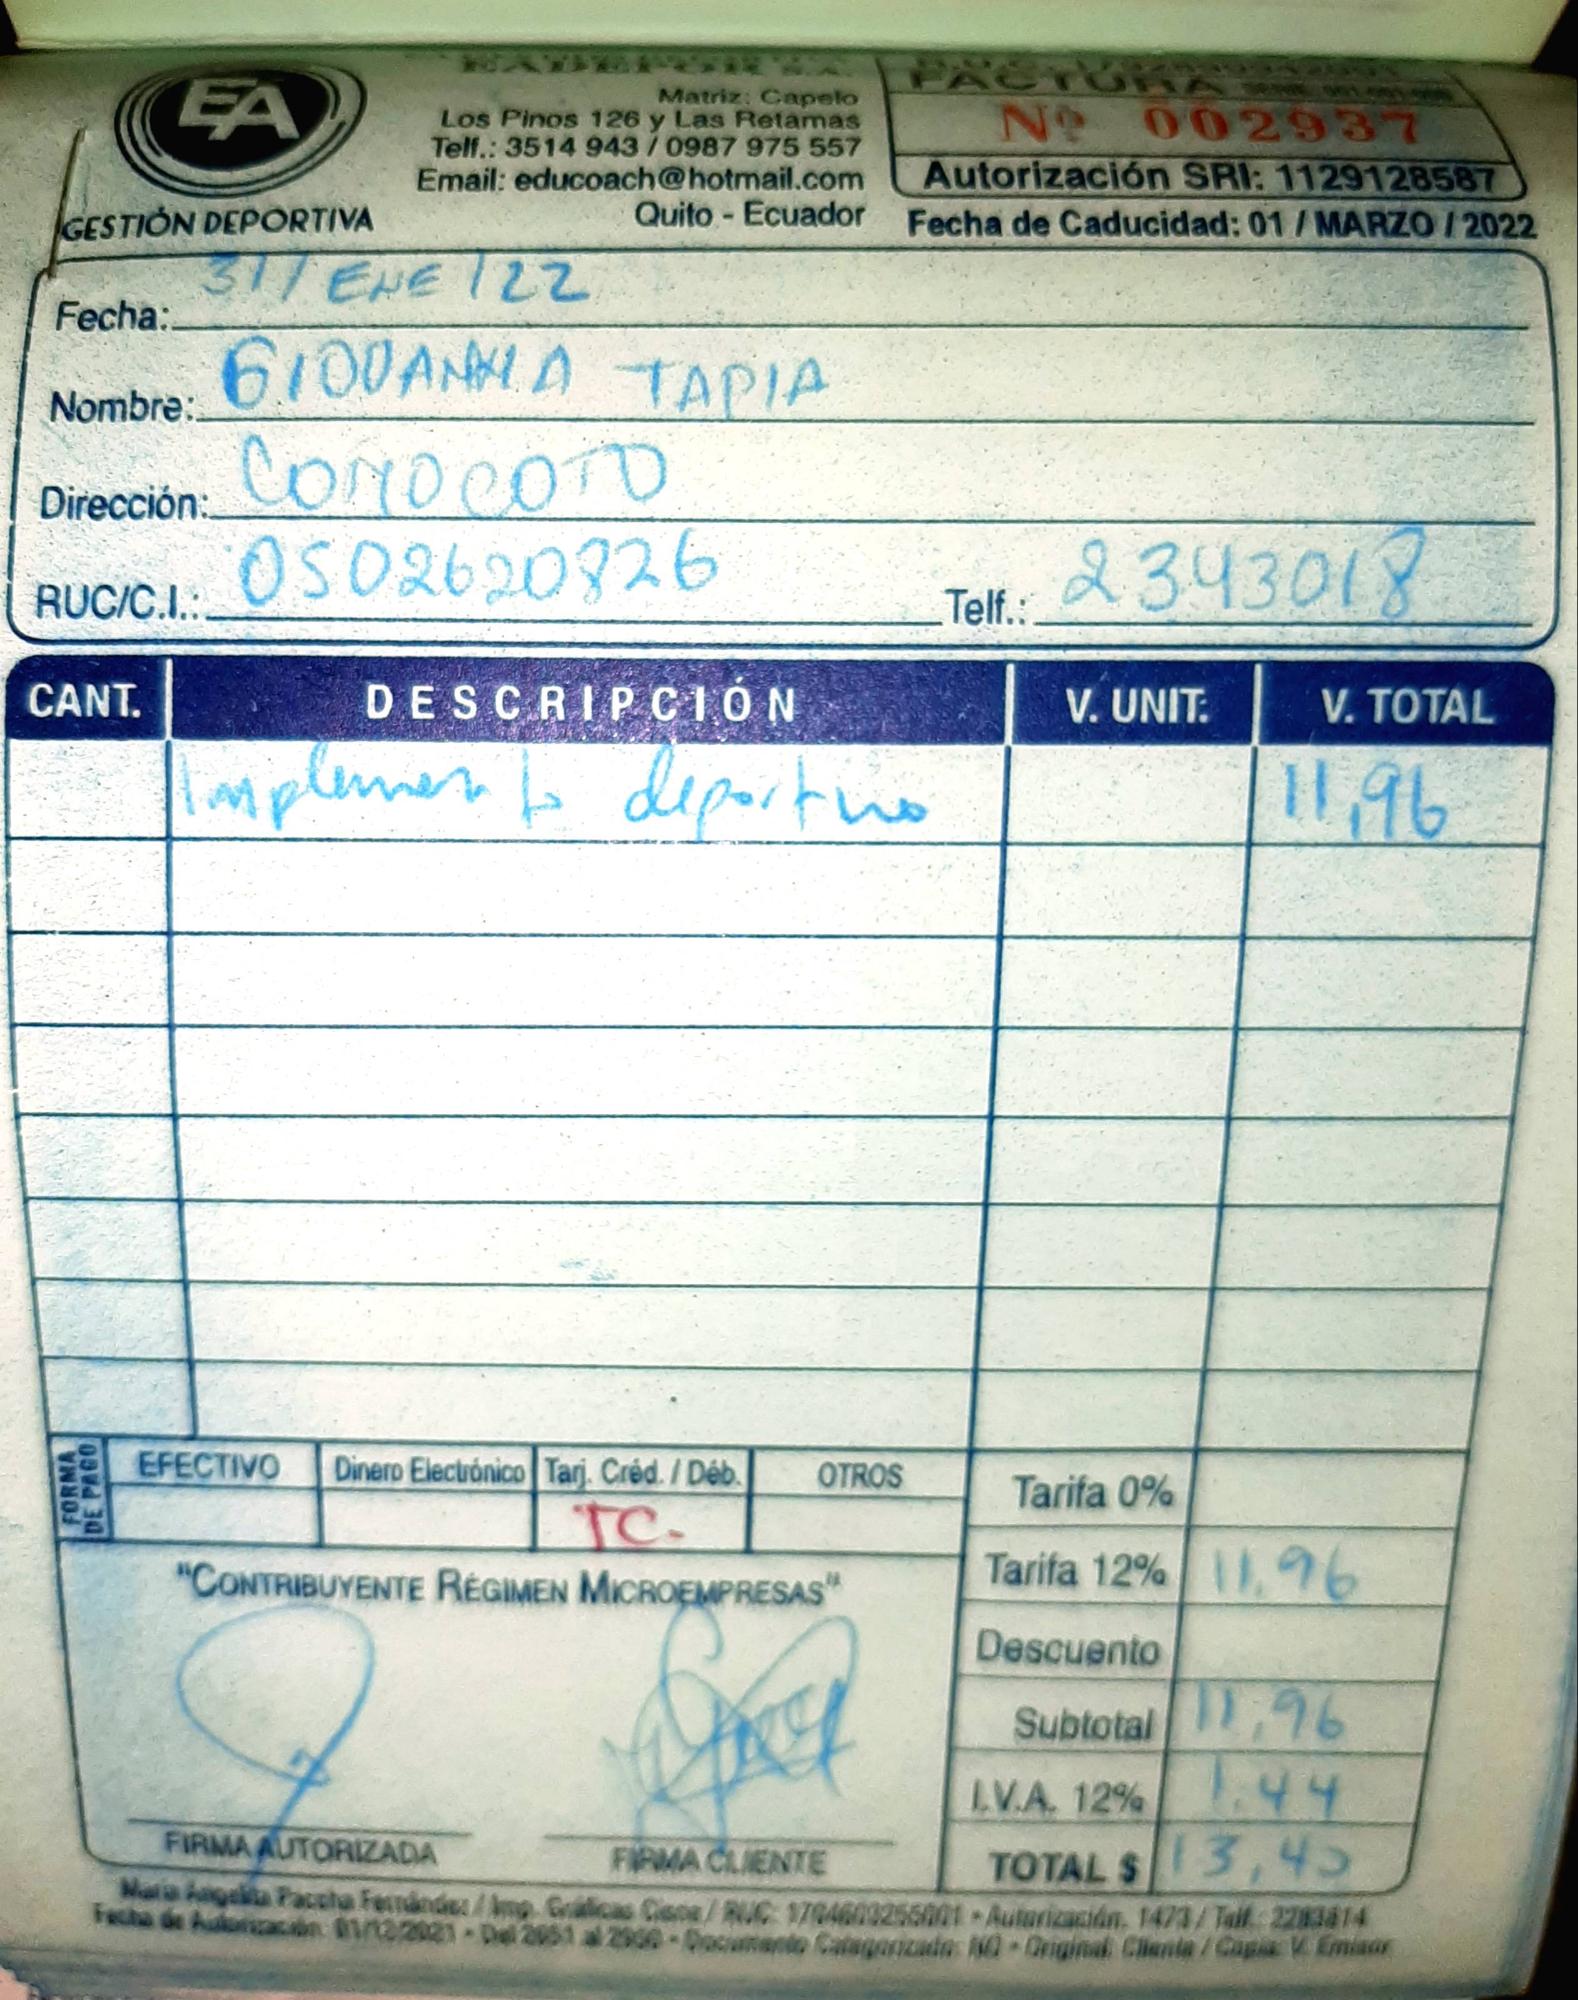 EA
GESTIÓN DEPORTIVA
EADEPOR S.A.
Matriz: Capelo
Los Pinos 126 y Las Retamas
Telf.: 3514 943 / 0987 975 557
Email: educoach@hotmail.com
Quito - Ecuador
FACTURA
Nº 002937
Autorización SRI: 1129128587
Fecha de Caducidad: 01 / MARZO / 2022
Fecha: 31 / ENE / 22
Nombre: GIOVANNA TAPIA
Dirección: CONOCOTO
RUC/C.I.: 0502620826 Telf.: 2343018
CANT. DESCRIPCIÓN V. UNIT. V. TOTAL
Implemento deportivo 11,96
FORMA DE PAGO
EFECTIVO Dinero Electrónico Tarj. Créd. / Déb. OTROS
TC.
Tarifa 0%
Tarifa 12% 11.96
Descuento
Subtotal 11,96
I.V.A. 12% 1.44
TOTAL $ 13,40
"CONTRIBUYENTE RÉGIMEN MICROEMPRESAS"
FIRMA AUTORIZADA FIRMA CLIENTE
María Angelita Paccha Fernández / Imp. Gráficas / RUC: 1704603255001 • Autorización. 1473 / Telf.: 2283814
Fecha de Autorización: 01/12/2021 • Del 2951 al • Documento Categorizado: NO • Original: Cliente / Copia: V. Emisor